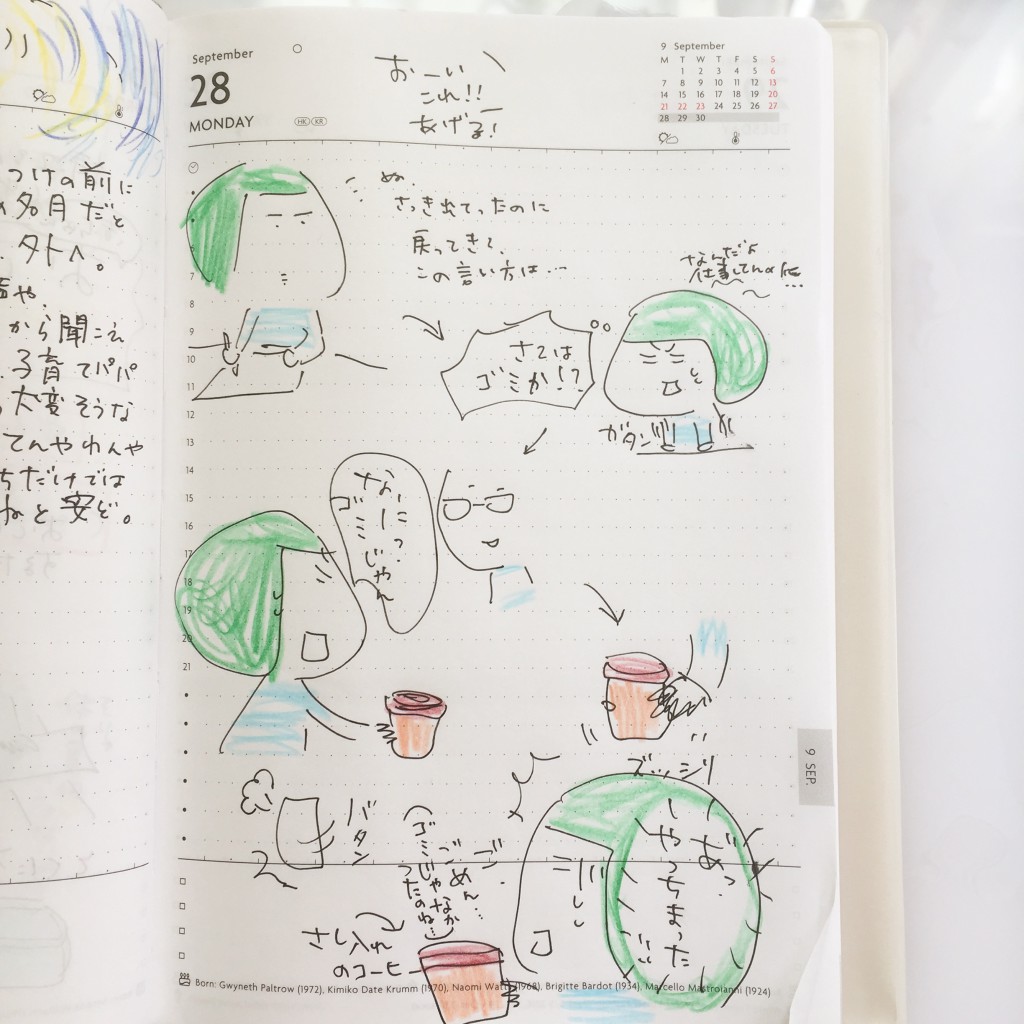 つけの前に
名月だと
外へ。
や、
から聞こえ
子育てパパ
大変そうな
てんやわんや
ちだけでは
ねと安ど。
September
28
MONDAY
HK KR
おーい
これ!!
あげる!
9 September
M T W T F S S
1 2 3 4 5 6
7 8 9 10 11 12 13
14 15 16 17 18 19 20
21 22 23 24 25 26 27
28 29 30
ぬ、
さっき出てったのに
戻ってきて、
この言い方は…
なんだよ
仕事してんのに…
さては
ゴミか!?
ガタン!!
なーにっ?
ゴミじゃん
6
7
8
9
10
11
12
13
14
15
16
17
18
19
20
21
9 SEP.
ズッシリ
あっ
やっちまった
バタン
ご
ごめん…
ゴミじゃなかったのね…
さし入れ
のコーヒー
Born: Gwyneth Paltrow (1972), Kimiko Date Krumm (1970), Naomi Watts (1968), Brigitte Bardot (1934), Marcello Mastroianni (1924)